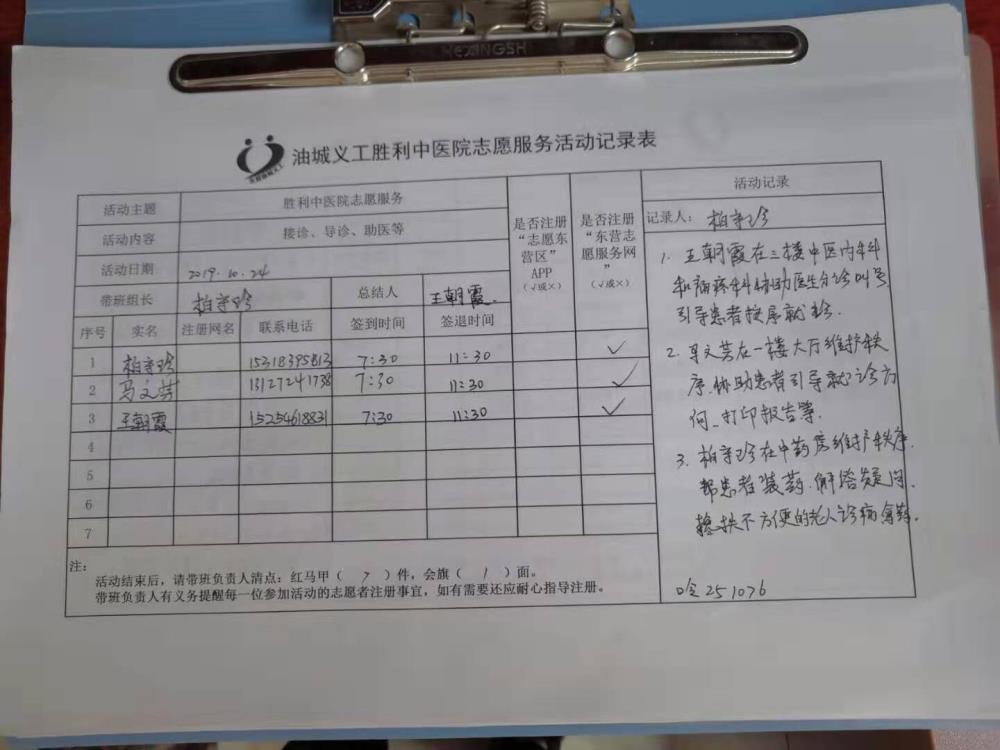 HEXINGSH
油城义工胜利中医院志愿服务活动记录表
活动主题 胜利中医院志愿服务
活动内容 接诊、导诊、助医等
活动日期 2019.10.24
带班组长 柏守珍 总结人 王朝霞
是否注册“志愿东营区”APP（√或×）
是否注册“东营志愿服务网”（√或×）
序号 实名 注册网名 联系电话 签到时间 签退时间
1 柏守珍 15318395813 7:30 11:30 ✓
2 马文芳 13127241738 7:30 11:30 ✓
3 王朝霞 15254618831 7:30 11:30 ✓
4
5
6
7
注：
活动结束后，请带班负责人清点：红马甲（ 7 ）件，会旗（ 1 ）面。
带班负责人有义务提醒每一位参加活动的志愿者注册事宜，如有需要还应耐心指导注册。
活动记录
记录人：柏守珍
1. 王朝霞在三楼中医内科
和脑病科协助医生分诊叫号
引导患者按序就诊.
2. 马文芳在一楼大厅维护秩
序.协助患者引导就诊方
向.打印报告等.
3. 柏守珍在中药房维护秩序.
帮患者装药.解答疑问.
搀扶不方便的老人诊病拿药.
251076